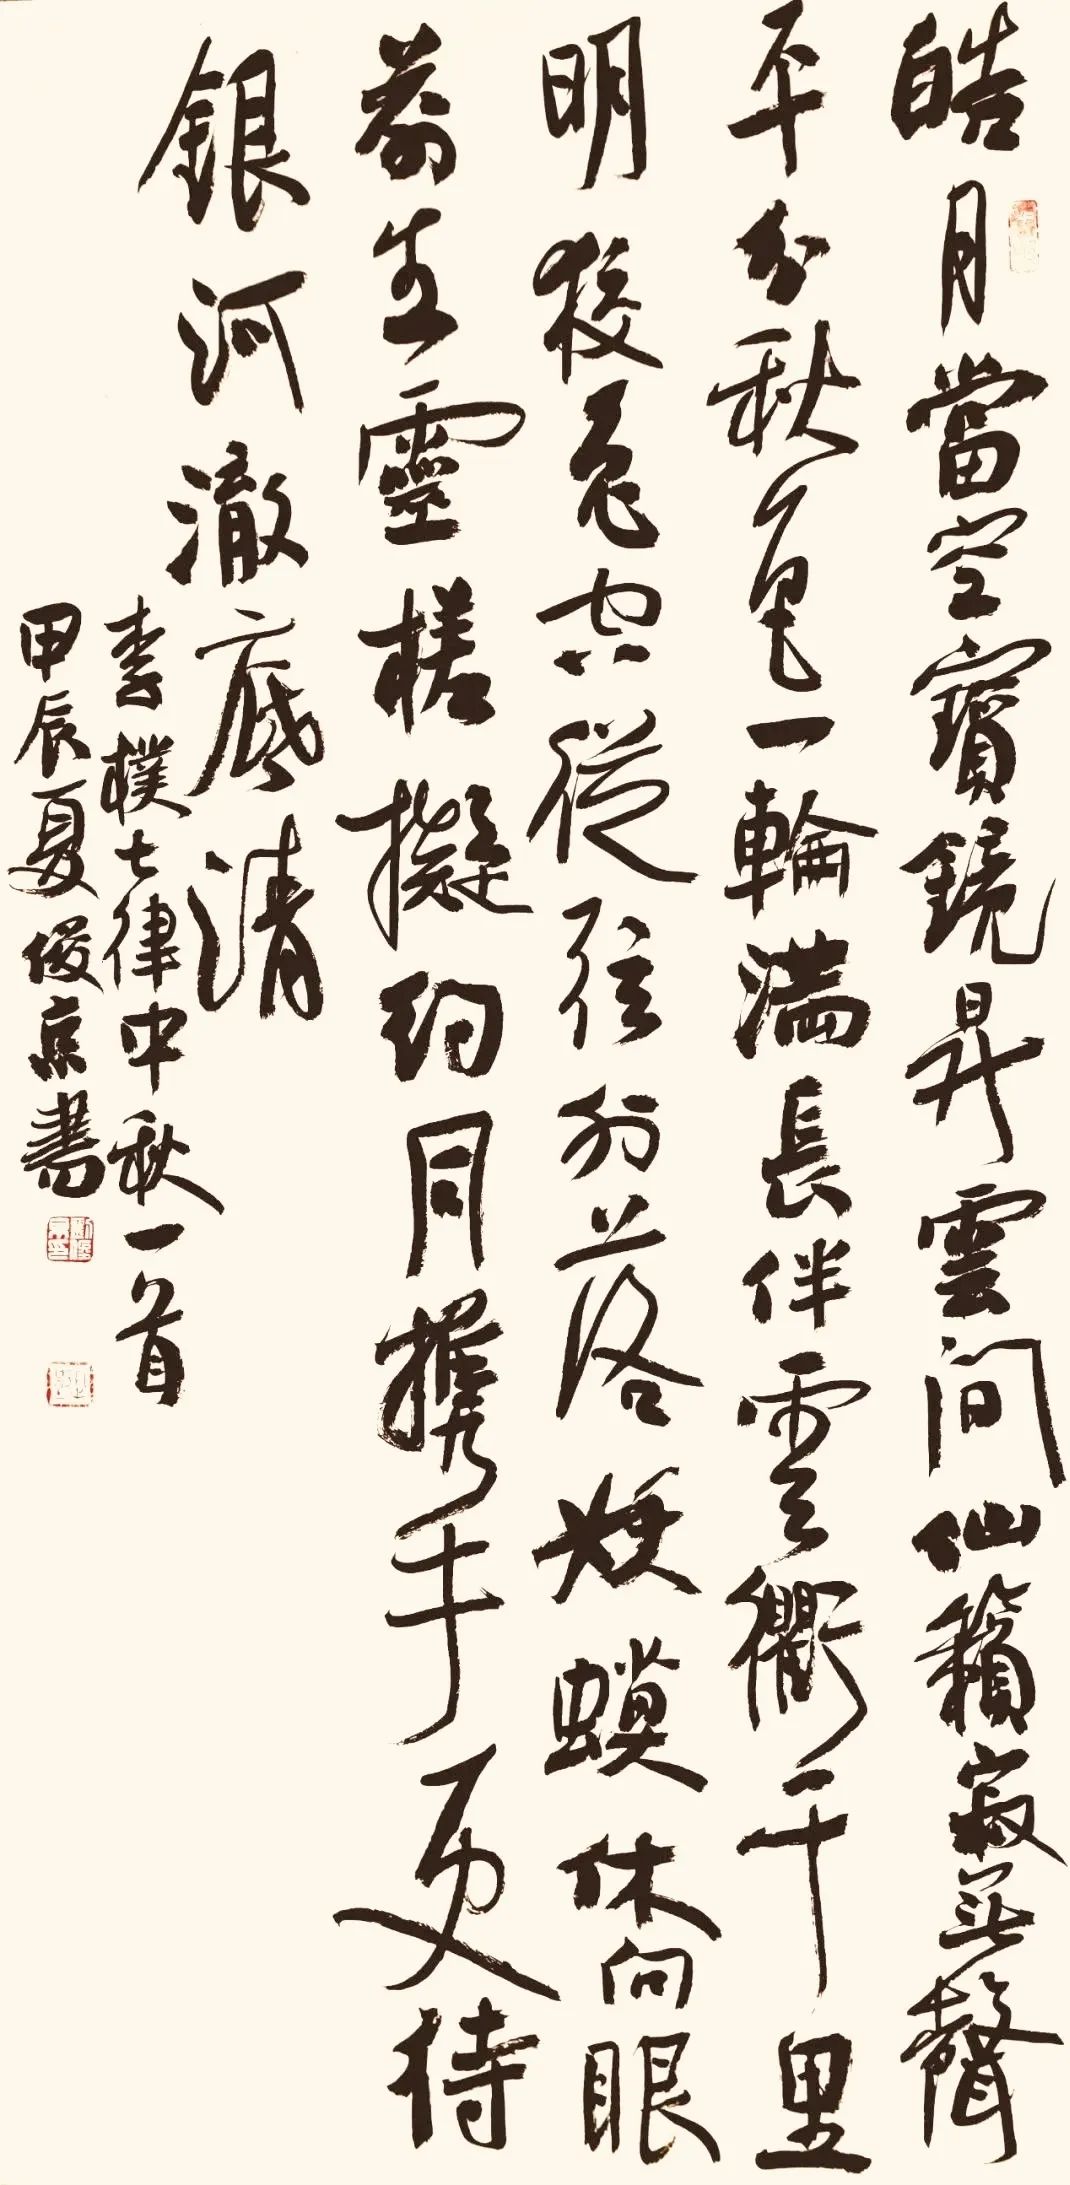 皓月當空寶鏡昇雲間仙籟寂無聲
平分秋色一輪滿長伴雲衢千里
明狡兔空從弦外落妖蟆休向眼
前生靈槎擬約同携手更待
銀河澈底清
李樸七律中秋一首
甲辰夏俊京書